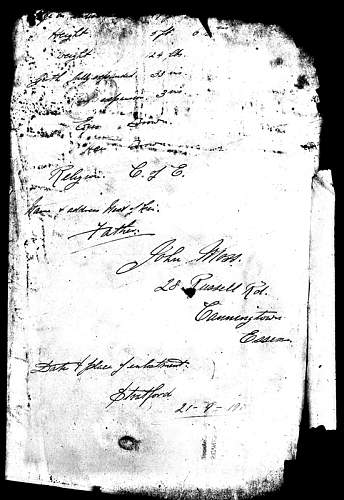 Height 5 ft 0
Weight lbs.
fully expanded in.
3 ins.
Eyes Brown.
Brown.
Religion. C. of E.
Name & address Next of Kin.
Father.
John Moss.
28 Russell Rd.
Canningtown
Essex
Date & place of enlistment.
Stratford
21-9-